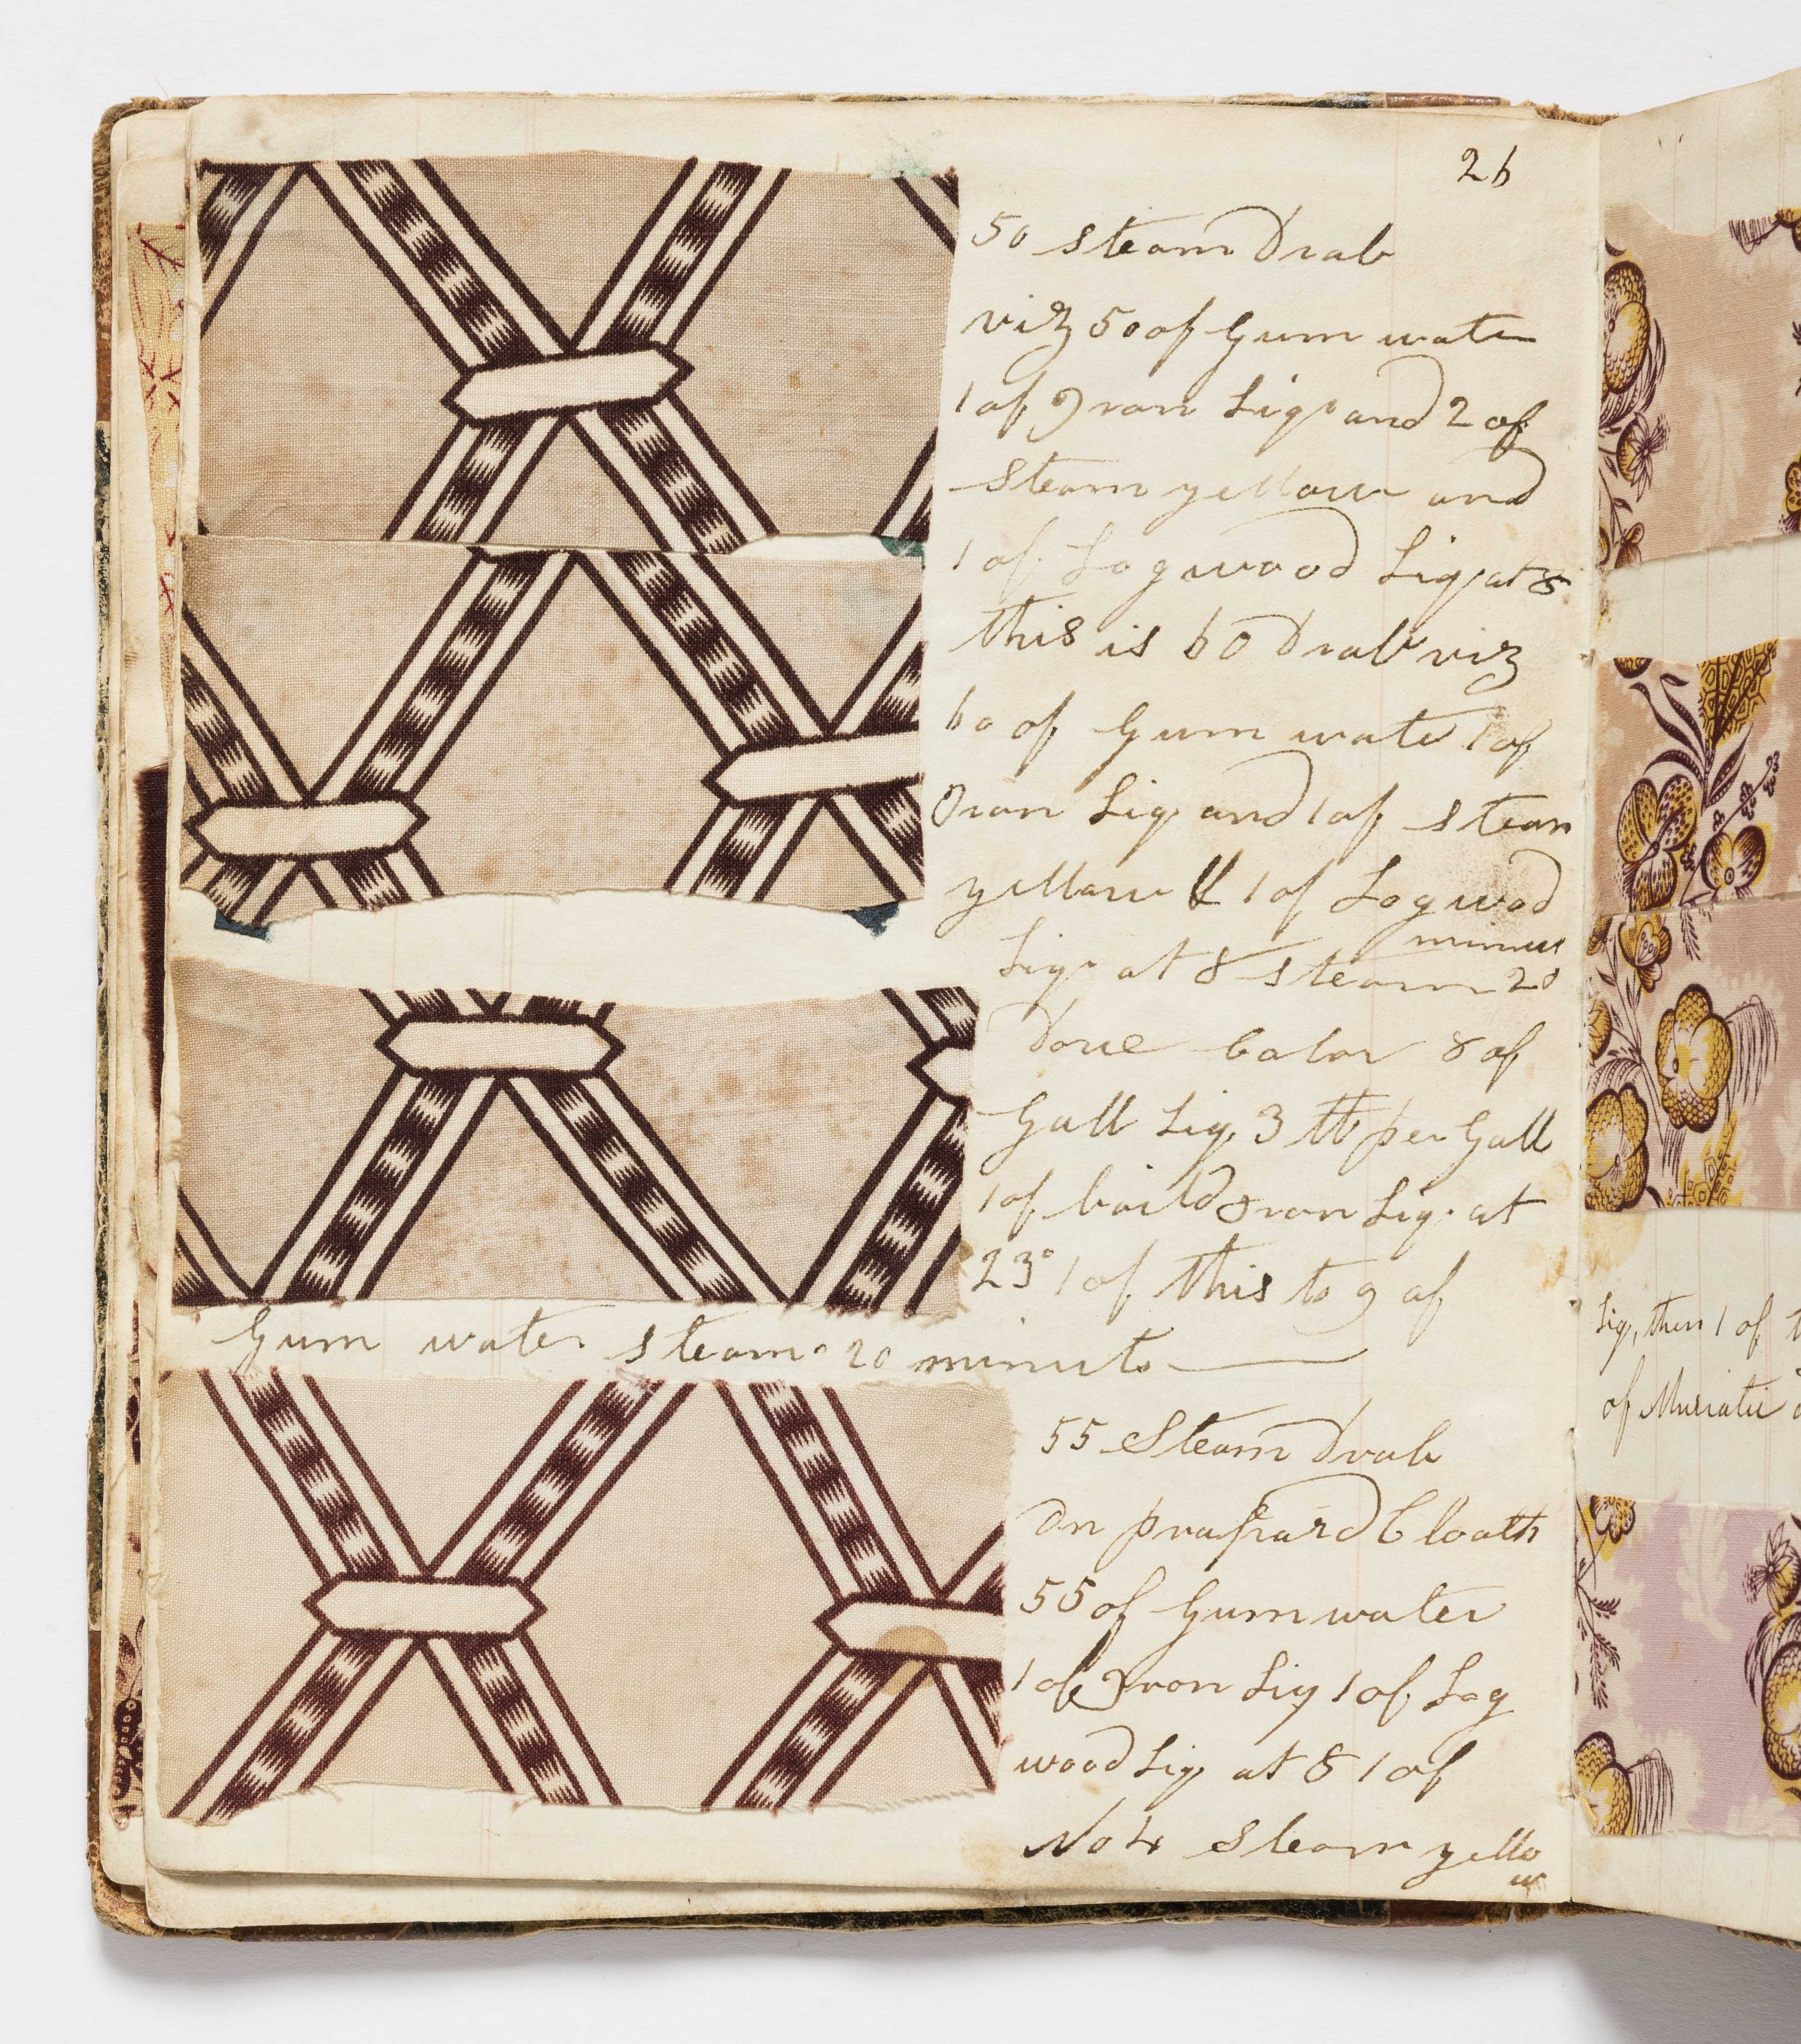 26
50 steam Drab
viz 50 of Gum water
1 of Iron Liqr and 2 of
steam yellow and
1 of Logwood Liq at 8
this is 60 Drab viz
60 of Gum water 1 of
Iron Liq and 1 of steam
yellow & 1 of Logwod
minut
Liqr at 8 steam 20
Dove Color 8 of
Gall Liq, 3 tt per Gall
1 of boild Iron Liq. at
23° 1 of this to 9 of
Gum water steam 20 minuts
55 Steam Drab
On prapard Cloath
55 of Gum water
1 of Iron Liq 1 of Log
wood Liq at 8 1 of
No 4 Steam yello
w
Liq, then 1 of
of Muriatic